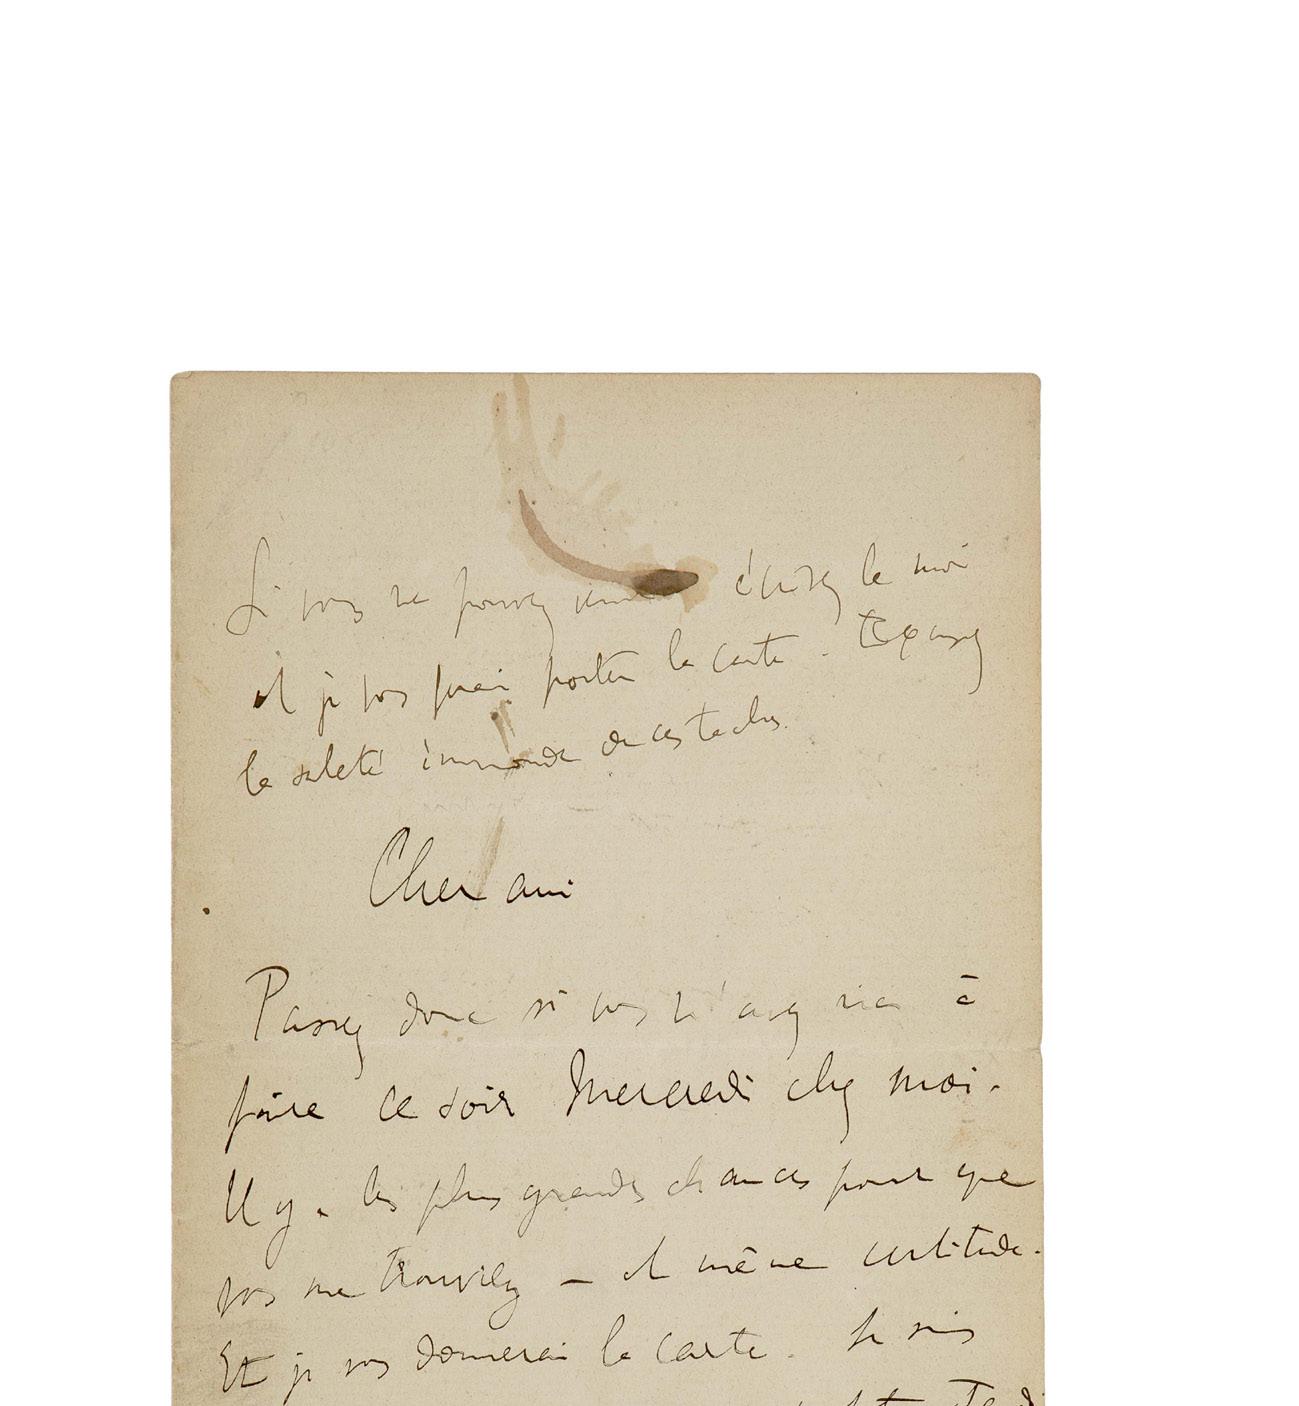 Si vous ne pouvez venir écrivez le moi
et je vous ferai porter la carte. Excusez
la saleté immonde de ces taches.
Cher ami
Passez donc si vous n'avez rien à
faire ce soir Mercredi chez moi.
Il y a les plus grandes chances pour que
vous me trouviez — et même certitude.
Et je vous donnerai la carte. Je suis